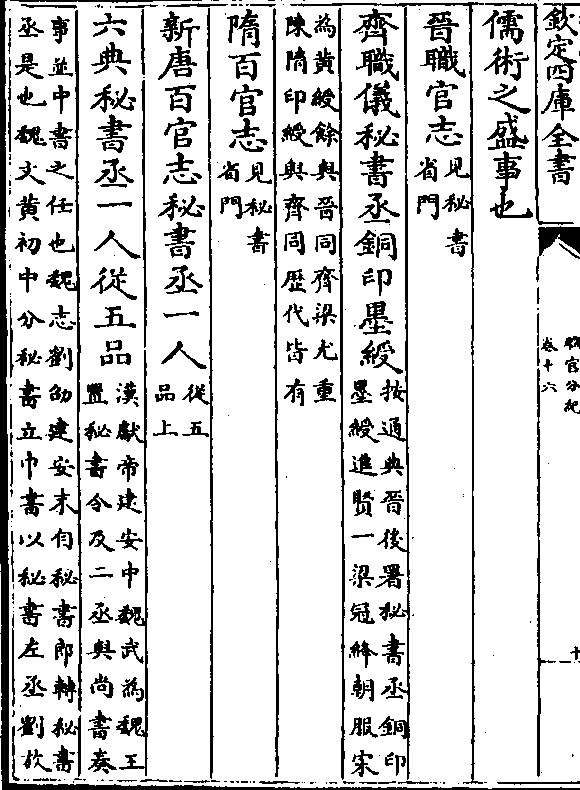 欽定四庫全書
職官分紀
卷十六
十
儒術之盛事也
晉職官志見秘書
省門
齊職儀秘書丞銅印墨綬按通典晉後署秘書丞銅印
墨綬進賢一梁冠絳朝服宋
為黄綬餘與晉同齊梁尤重
陳隋印綬與齊同歴代皆有
隋百官志見秘書
省門
新唐百官志秘書丞一人從五
品上
六典秘書丞一人從五品漢獻帝建安中魏武為魏王
置秘書令及二丞與尚書奏
事並中書之任也魏志劉劭建安末自秘書郎轉秘書
丞是也魏文黄初中分秘書立中書以秘書左丞劉放